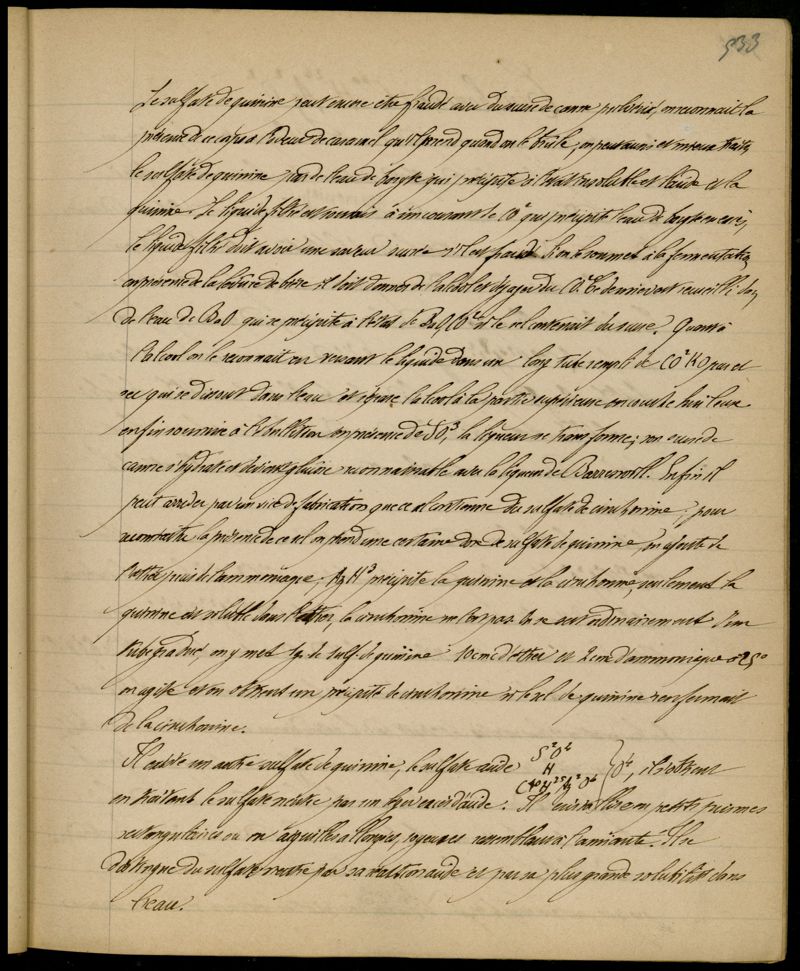 533
Le sulfate de quinine peut encore être fraudé avec du sucre de canne pulvérisé, on reconnait la
présence de ce corps à l'odeur de caramel qu'il prend quand on le brûle, on peut aussi et mieux traiter
le sulfate de quinine par de l'eau de baryte qui précipite à l'état insoluble et l'acide et la
quinine. Le liquide filtré est soumis à un courant de CO² qui précipite l'eau de baryte en excès,
le liquide filtré doit avoir une saveur sucrée s'il est fraudé. Si on le soumet à la fermentation
en présence de la levûre de bière il doit donner de l'alcool et dégager du CO². Ce dernier est recueilli dans
de l'eau de BaO qui se précipite à l'état de BaOCO² si le sel contenait du sucre. Quant à
l'alcool on le reconnait en versant le liquide dans un long tube rempli de CO²KO pur et
sec qui se dissout dans l'eau et sépare l'alcool à la partie supérieure en couche huileuse
enfin soumise à l'ébullition en présence de SO³, la liqueur se transforme; son sucre de
canne s'hydrate et devient glucose reconnaissable avec la liqueur de Barreswill. Enfin il
peut arriver par un vice de fabrication que ce sel contienne du sulfate de cinchonine; pour
reconnaître la présence de ce sel on prend une certaine dose de sulfate de quinine on ajoute de
l'éther puis de l'ammoniaque, AzH³ précipite la quinine et la cinchonine, seulement la
quinine est soluble dans l'éther, la cinchonine ne l'est pas. On se sert ordinairement d'un
tube gradué on y met 1g. de sulf. de quinine 10cmc d'éther et 2cmc d'ammoniaque à 25°
on agite et on obtient un précipité de cinchonine si le sel de quinine renfermait
de la cinchonine.
Il existe un autre sulfate de quinine, le sulfate acide S²O⁶ H C⁴⁰H²⁵Az²O⁶ } O⁶, il s'obtient
en traitant le sulfate neutre par un léger excès d'acide. Il cristallise en petits prismes
rectangulaires ou en aiguilles allongées, soyeuses ressemblant à l'amiante. Il se
distingue du sulfate neutre par sa réaction acide et par sa plus grande solubilité dans
l'eau.